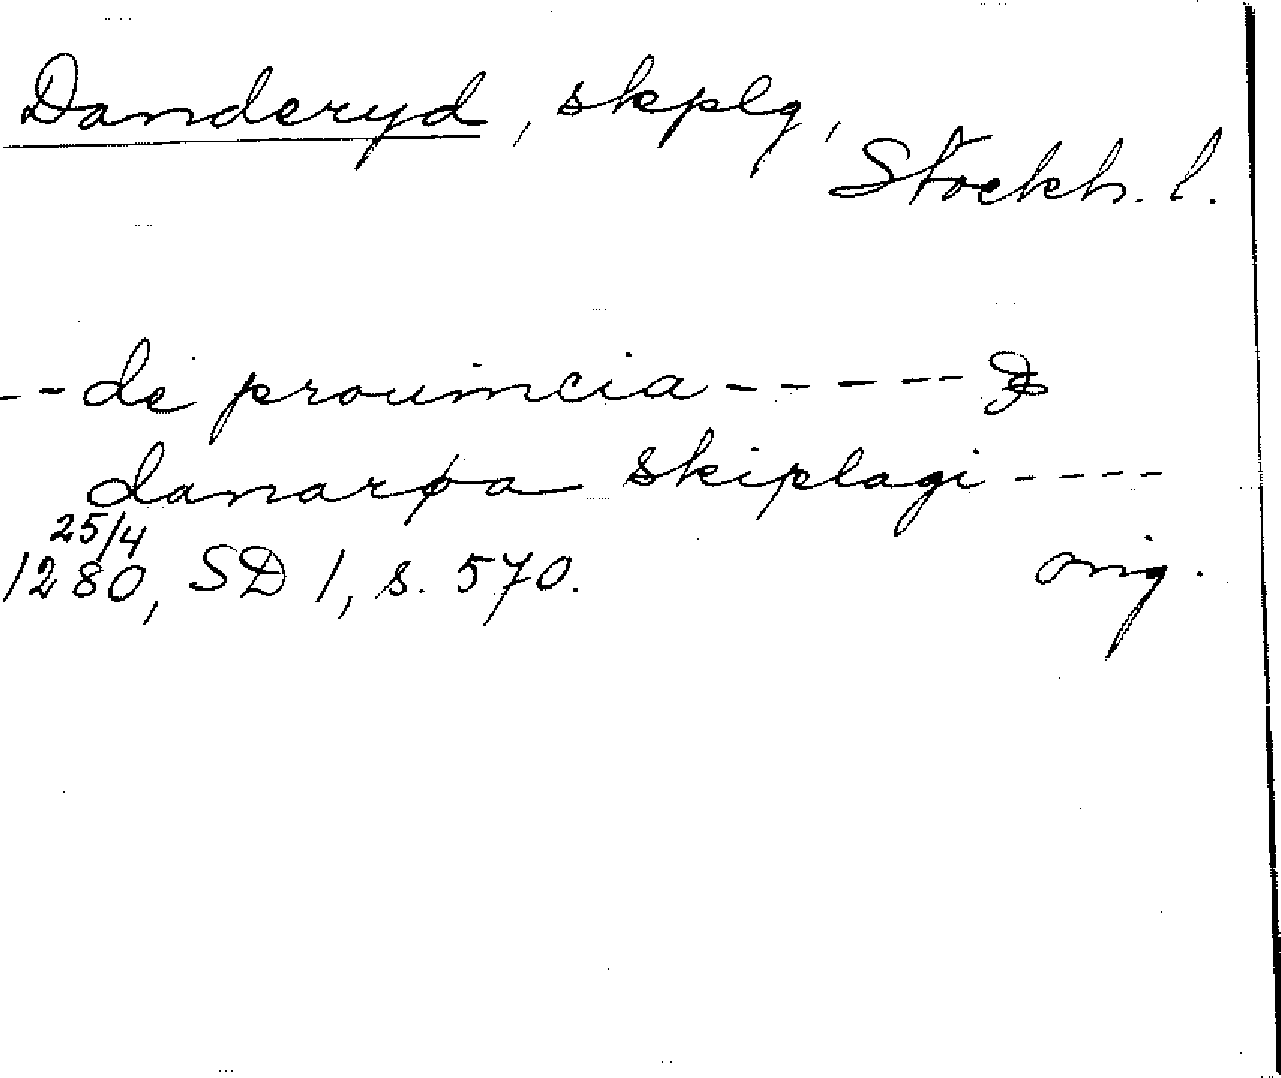 Danderyd, skplg,
Stockh. l.
-- de prouincia ----- &
danarøa skiplagi ----
25/4
1280, SD 1, s. 570. orig.